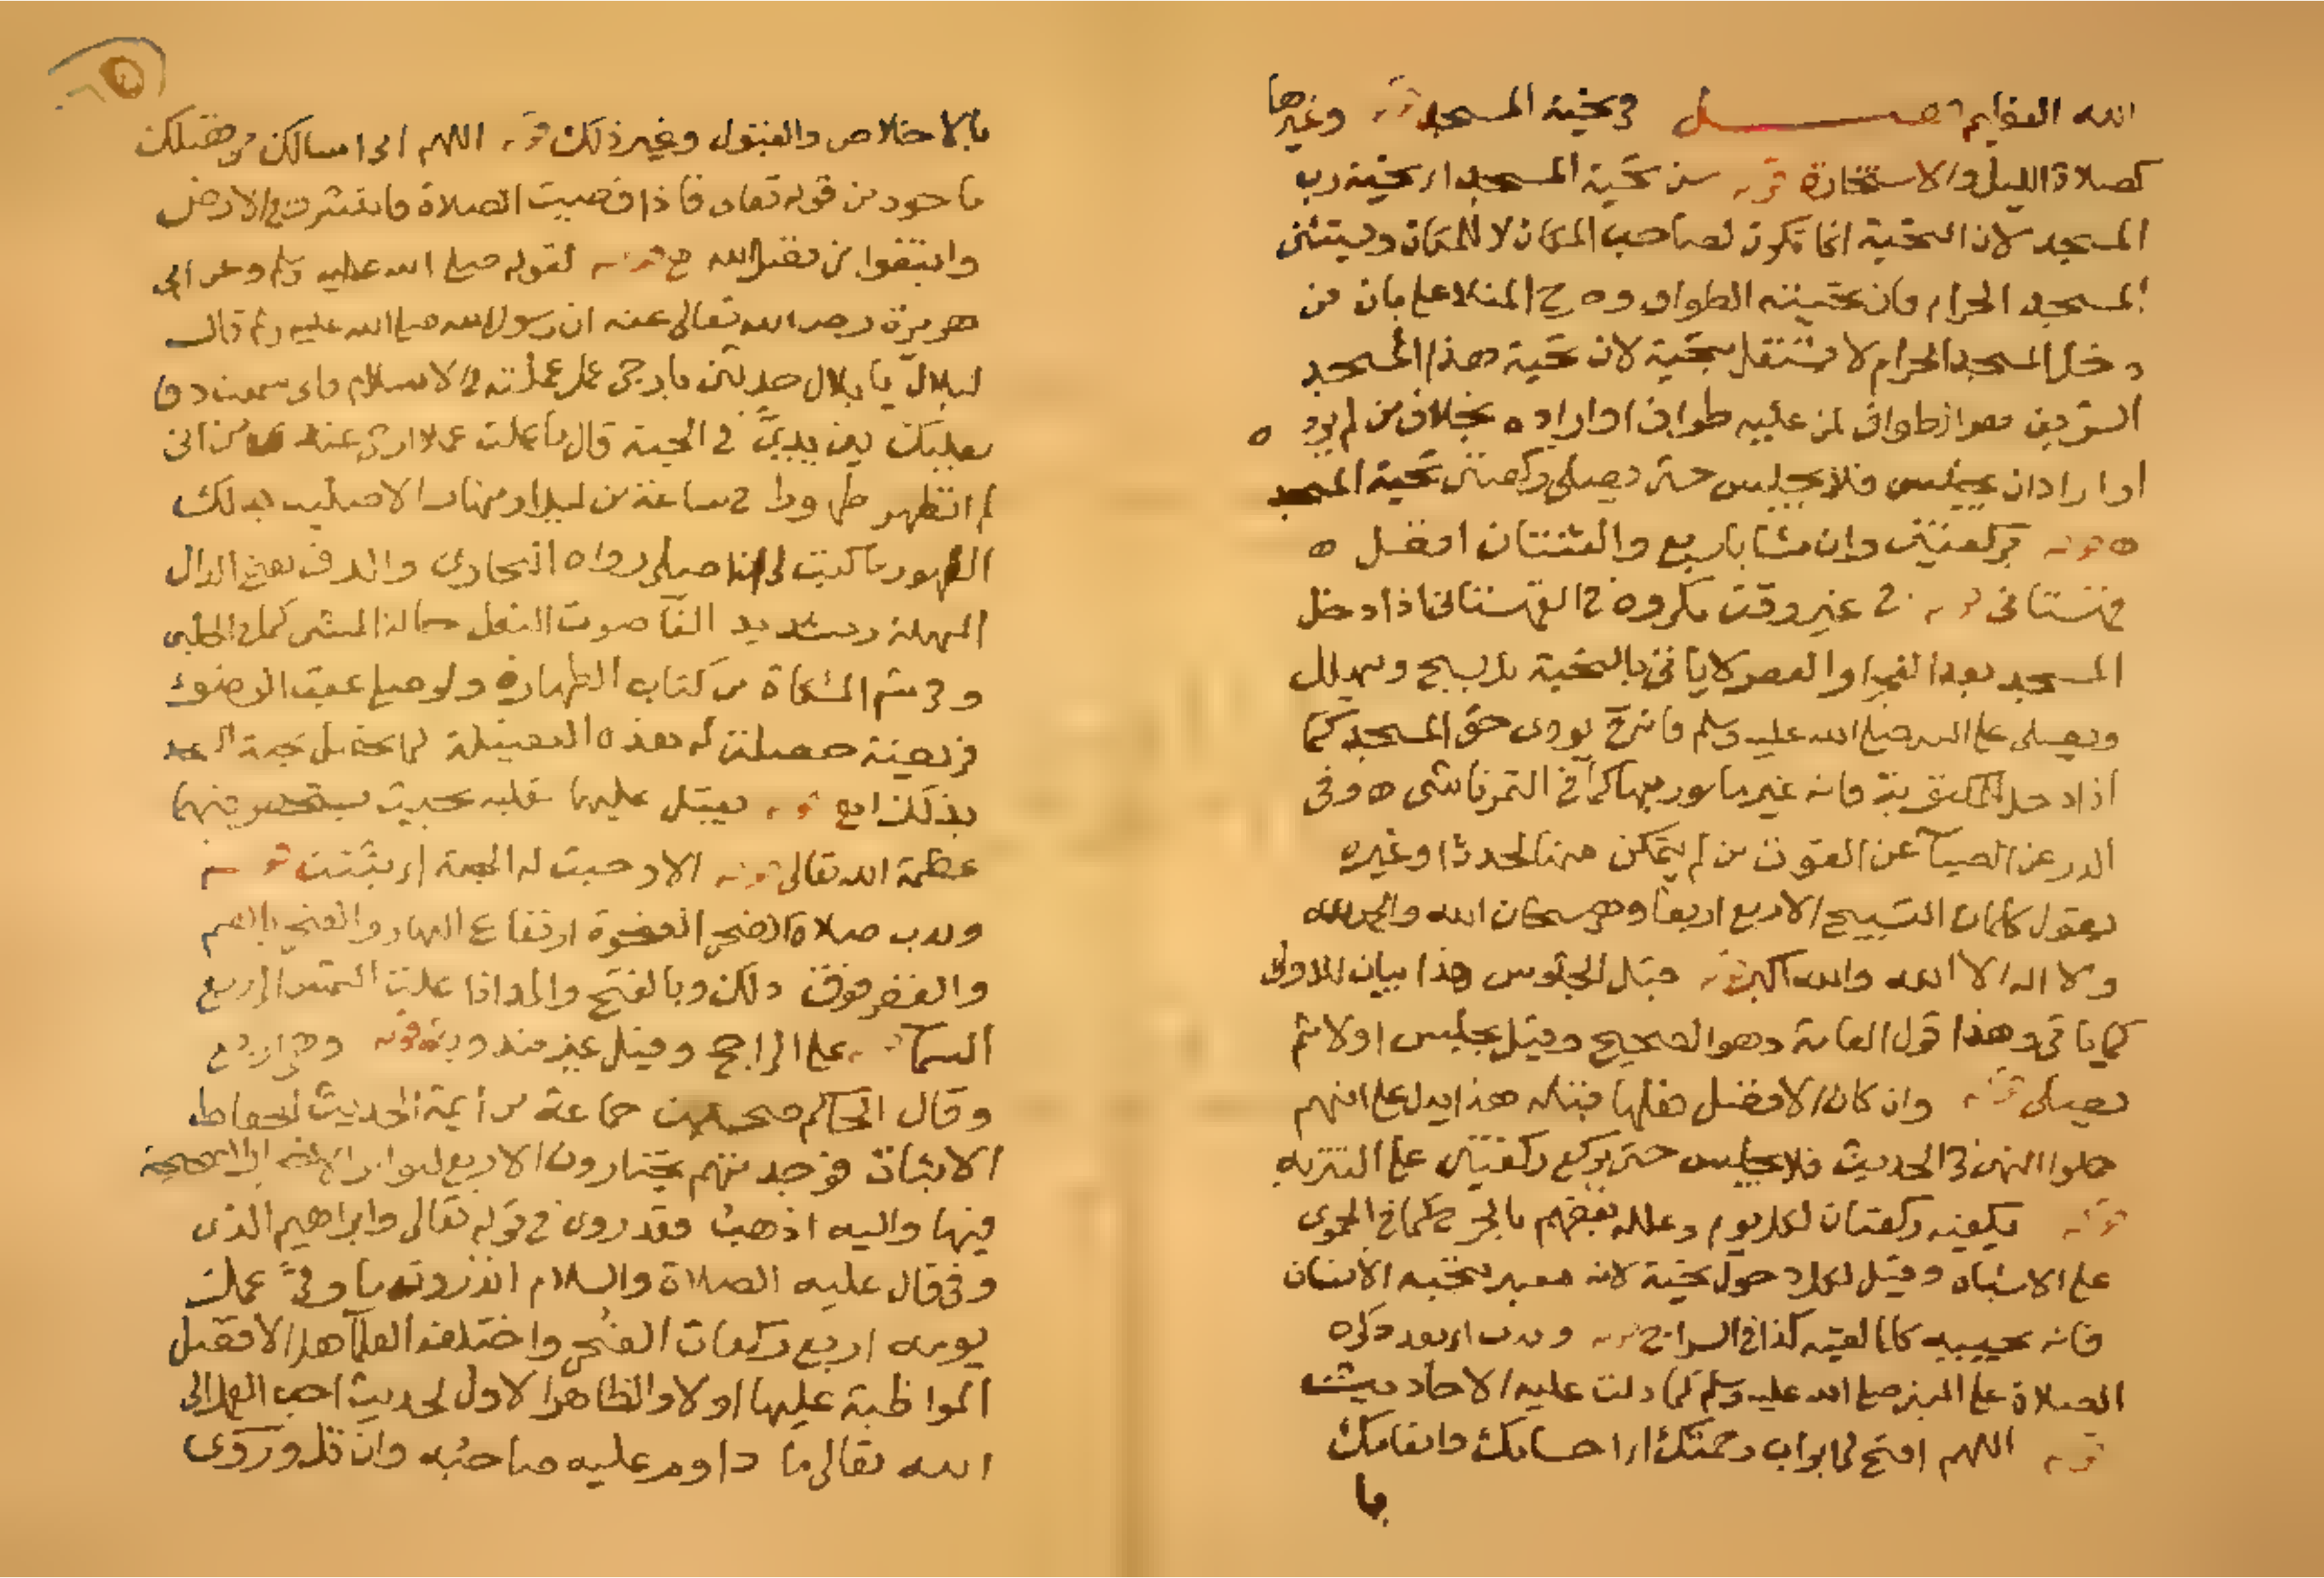 الله العظيم فصل في تحية المسجد قوله وغيرها
كصلاة الليل والاستخارة قوله سن تحية المسجد اي تحية رب
المسجد لان التحية انما تكون لصاحب المكان لا للمكان ويستثنى
المسجد الحرام فان تحيته الطواف وصرح المنلا علي بان من
دخل المسجد الحرام لا يشتغل بتحية لان تحية هذا المسجد
الشريف هو الطواف لمن عليه طواف او اراده بخلاف من لم يرد ه
او اراد ان يجلس فلا يجلس حتى يصلي ركعتين تحية المسجد
ه قوله بركعتين وان شا باربع والثنتان افضل ه
قهستاني قوله في غير وقت مكروه في القهستاني اذا دخل
المسجد بعد الفجر او العصر لا ياتي بالتحية بل يسبح ويهلل
ويصلي على النبي صلى الله عليه وسلم فانه ح يودي حق المسجد كما
اذا دخل للمكتوبة فانه غير مامور بها كما في التمرتاشي ه وفي
الدر عن الضيا عن القوت من لم يتمكن منها لحدث او غيره
يقول كلمات التسبيح الاربع اربعا وهي سبحان الله والحمد لله
ولا اله الا الله والله اكبر قوله قبل الجلوس هذا بيان للاولى
كما ياتي وهذا قول العامة وهو الصحيح وقيل يجلس اولا ثم
يصلي قوله وان كان الافضل فعلها قبله هذا يدل على انهم
حملوا النهي في الحديث فلا يجلس حتى يركع ركعتين على التنزيه
قوله يكفيه ركعتان لكل يوم وعلله بعضهم بالحرج كما في الحموي
على الاشباه وقيل لكل دخول تحية لانه معتبر بتحية الانسان
فانه يحييه كلما لقيه كذا في السراج قوله وندب اي بعد ذكره
الصلاة على النبي صلى الله عليه وسلم كما دلت عليه الاحاديث
قوله اللهم افتح لي ابواب رحمتك اي احسانك وانعامك
با
بالاخلاص والقبول وغير ذلك قوله اللهم اني اسالك من فضلك
ماخوذ من قوله تعالى فاذا قضيت الصلاة فانتشروا في الارض
وابتغوا من فضل الله ح قوله لقوله صلى الله عليه وسلم وعن ابي
هريرة رضي الله تعالى عنه ان رسول الله صلى الله عليه وسلم قال
لبلال يا بلال حدثني بارجى عمل عملته في الاسلام فاني سمعت دف
نعليك بين يدي في الجنة قال ما عملت عملا ارجى عندي من اني
لم اتطهر طهورا في ساعة من ليل او نهار الا صليت بذلك
الطهور ما كتب لي ان اصلي رواه البخاري والدف بفتح الدال
المهملة وتشديد الفا صوت النعل حالة المشي كما في الحلبي
وفي شرح المشكاة من كتاب الطهارة ولو صلى عقب الوضوء
فريضة حصلت له هذه الفضيلة كما تحصل تحية المسجد
بذلك قوله يقبل عليهما بقلبه بحيث يستحضر فيهما
عظمة الله تعالى قوله الا وجبت له الجنة اي ثبتت قوله
وندب صلاة الضحى الضحوة ارتفاع النهار والضحى بالضم
والقصر فوق ذلك وبالفتح والمد اذا علت الشمس الى ربع
السما قوله على الراجح وقيل غير مندوبة قوله وهي اربع
وقال الحاكم صحبت جماعة من أيمة الحديث الحفاظ
الاثبات فوجدتهم يختارون الاربع لتواتر الاخبار الصحيحة
فيها واليه اذهب فقد روى في قوله تعالى وابراهيم الذي
وفى قال عليه الصلاة والسلام اتدرون ما وفى عملت
يومه اربع ركعات الضحى واختلف العلما هل الافضل
المواظبة عليها او لا والظاهر الاول لحديث احب العمل الى
الله تعالى ما داوم عليه صاحبه وان قل وروى